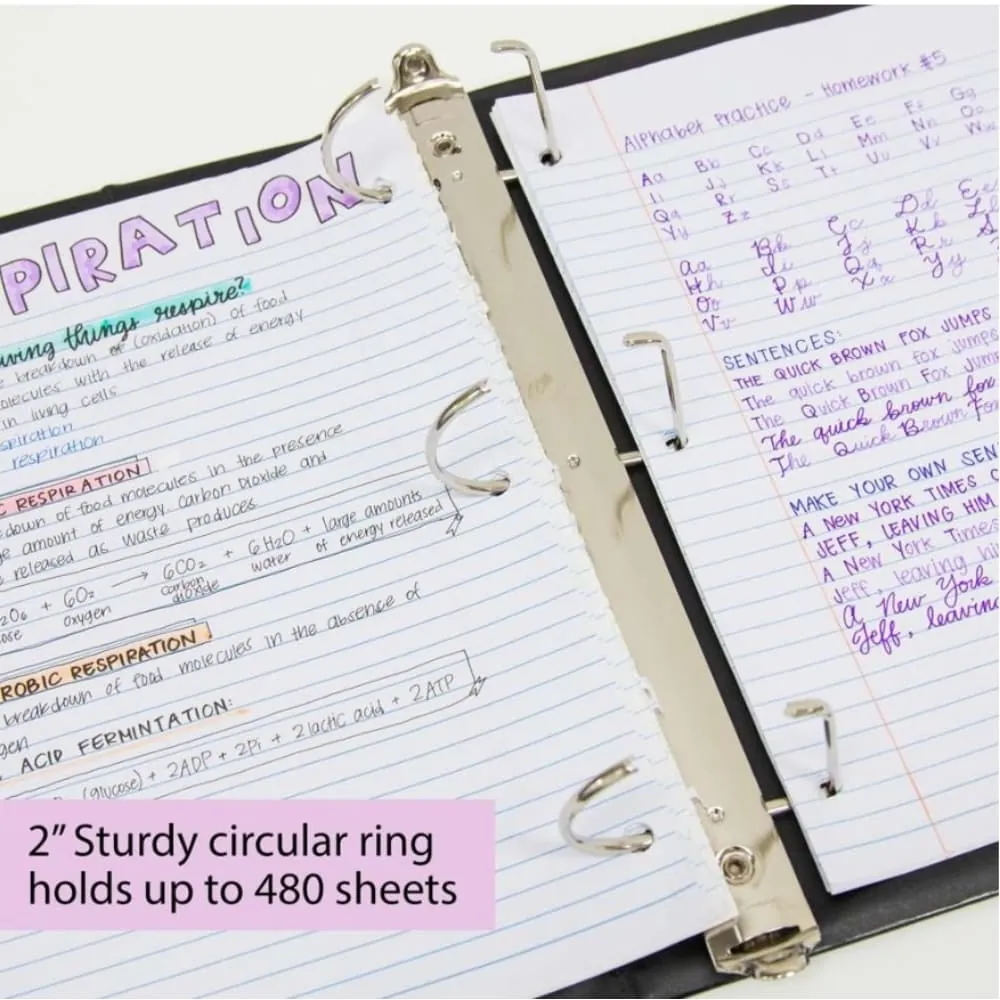 PIRATION
living things respire?
e breakdown of (oxidation) of food
olecules with the release of energy
in living cells
spiration
respiration
C RESPIRATION
kdown of food molecules in the presence
ge amount of energy. Carbon Dioxide and
e released as waste produces
2O6 + 6O2 → 6CO2 + 6H2O + large amounts
ose oxygen carbon dioxide water of energy released
ROBIC RESPIRATION
breakdown of food molecules in the absence of
gen
ACID FERMINTATION:
(glucose) + 2ADP + 2Pi + 2 lactic acid + 2ATP
2” Sturdy circular ring
holds up to 480 sheets
Alphabet Practice - Homework #5
Aa Bb Cc Dd Ee Ff Gg
Ii Jj Kk Ll Mm Nn Oo
Qq Rr Ss Tt Uu Vv Ww
Yy Zz
Aa Bb Cc Dd Ee
Hh Ii Jj Kk Ll
Oo Pp Qq Rr S
Vv Ww Xx Yy
SENTENCES:
THE QUICK BROWN FOX JUMPS
The quick brown fox jumps
The Quick Brown Fox Jump
The quick brown fox
The Quick Brown Fo
MAKE YOUR OWN SEN
A NEW YORK TIMES
JEFF, LEAVING HIM
A New York Times
Jeff, leaving hi
A New York
Jeff, leaving